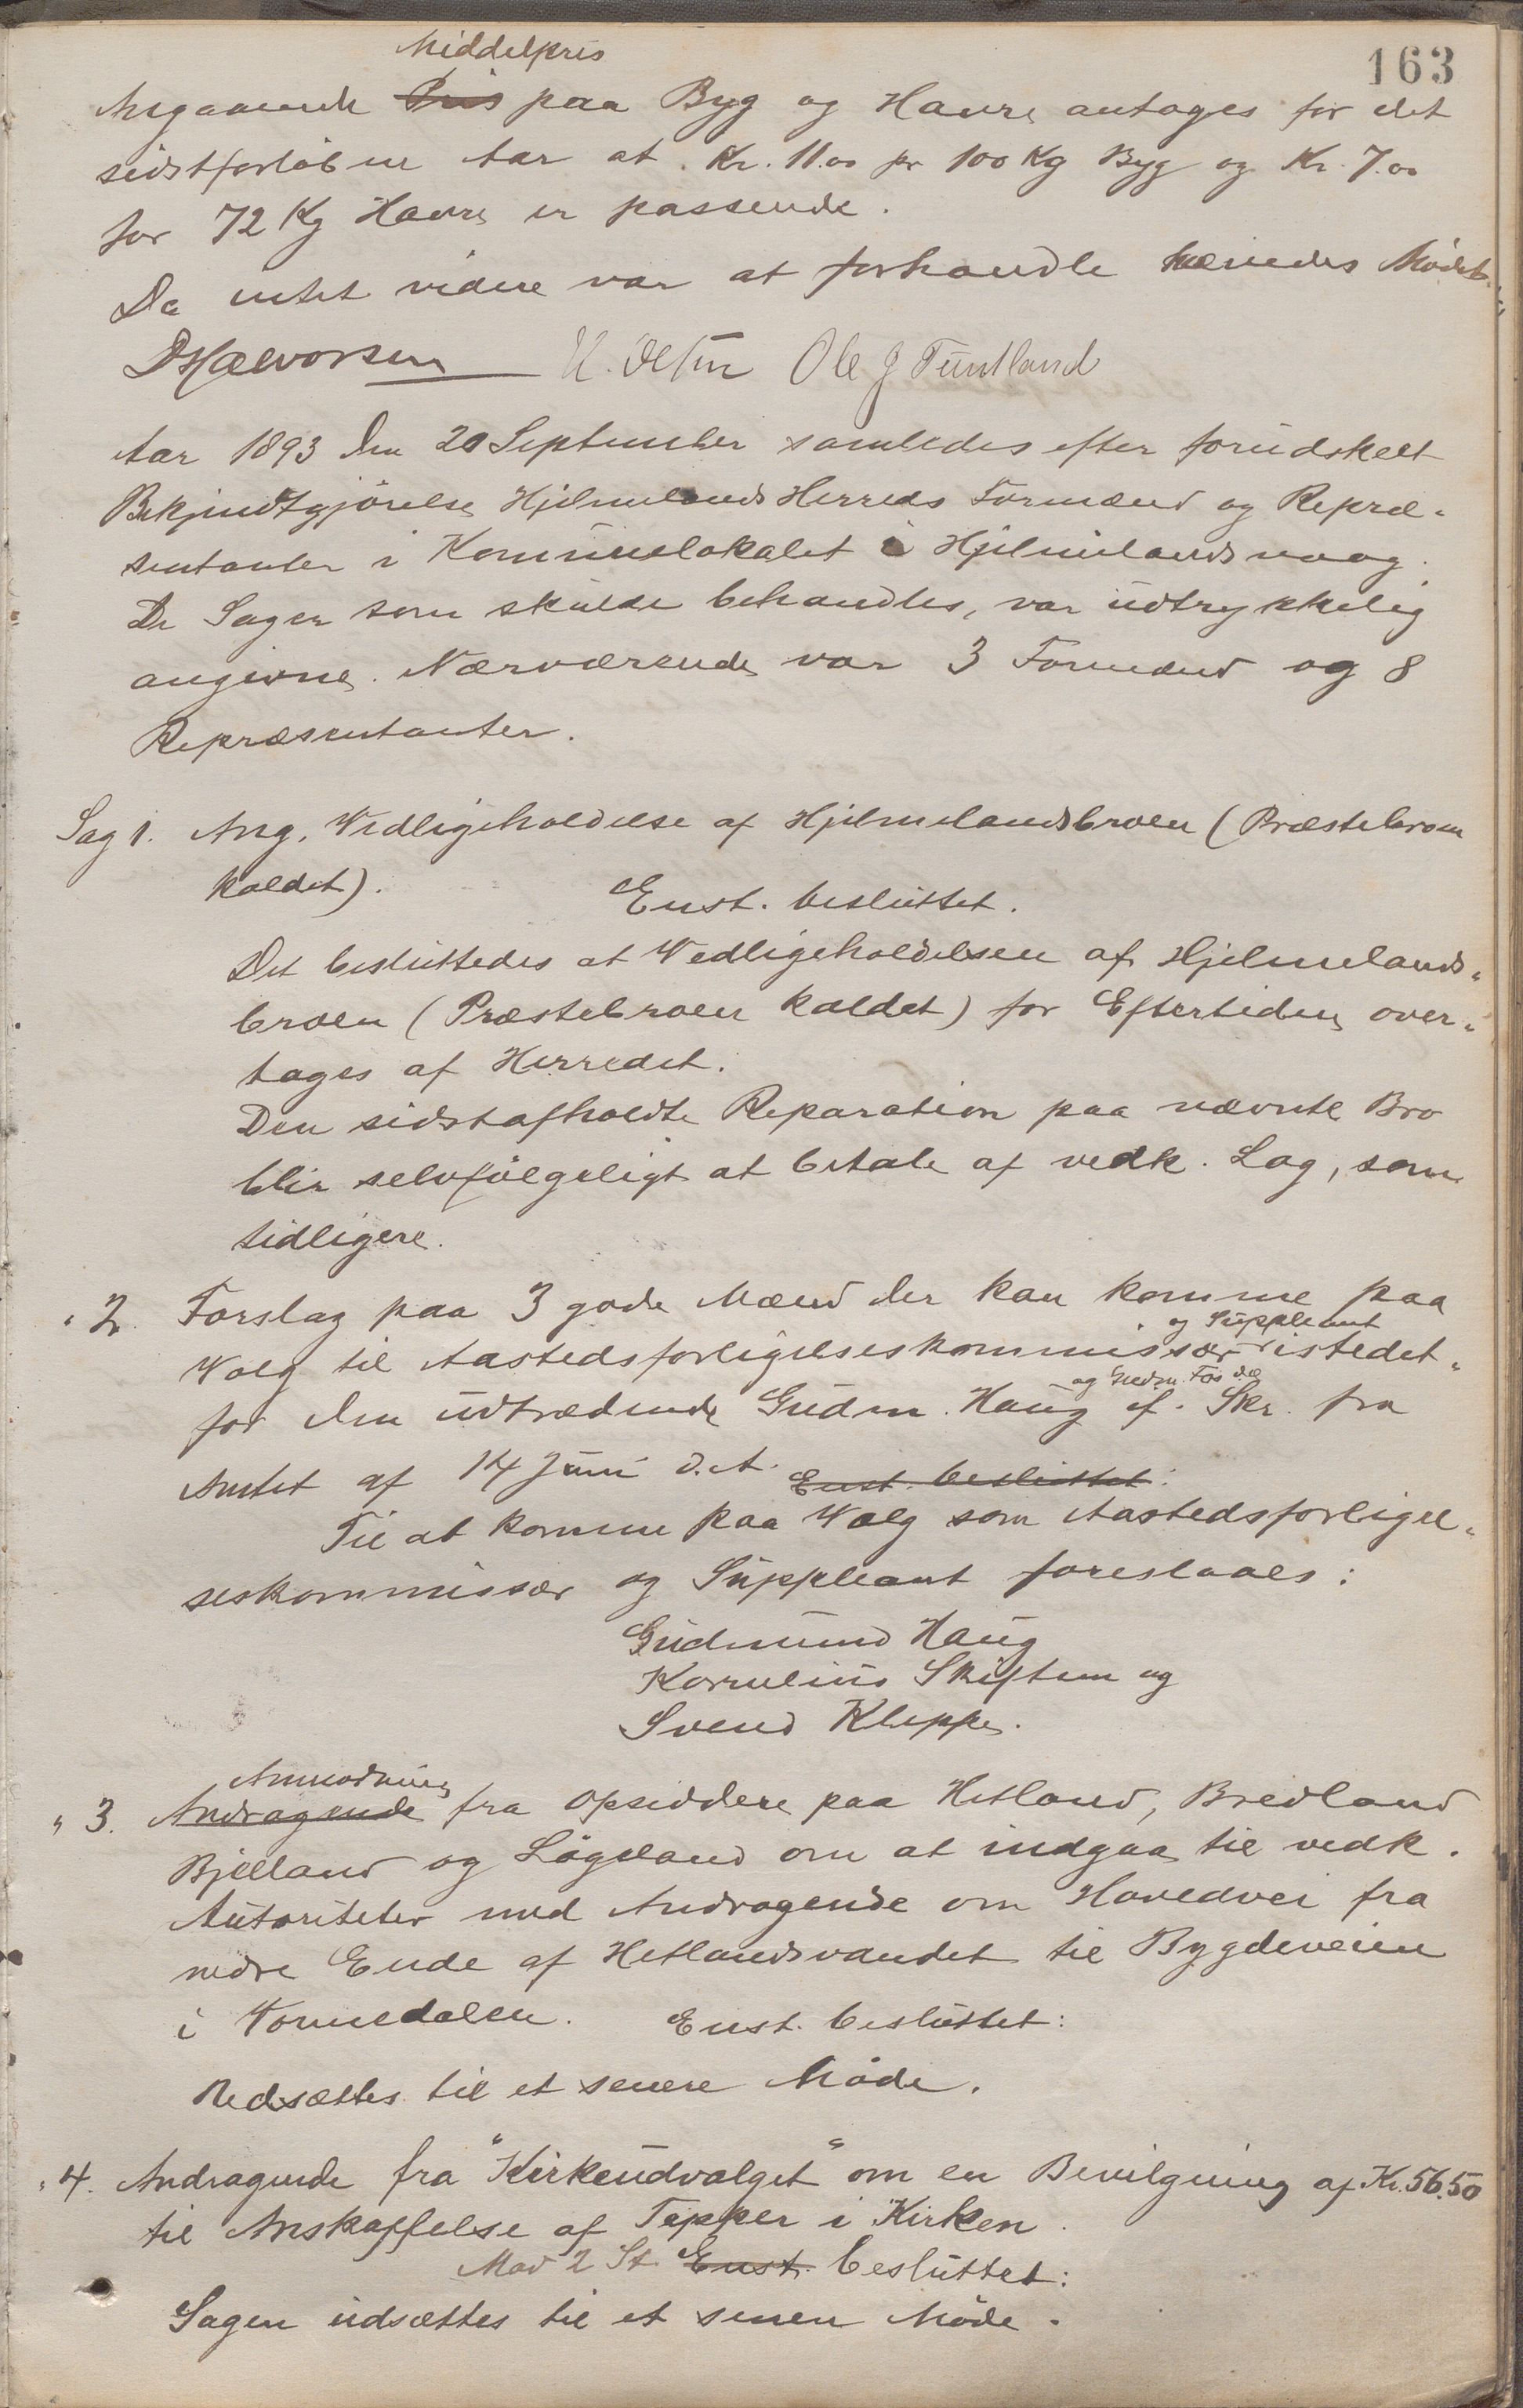 163
Middelpris
Angaaende Pris paa Byg og Havre antages for det
sidstforløbne Aar at Kr. 11.00 pr 100 Kg Byg og Kr. 7.00
for 72 Kg Havre er passende.
Da intet videre var at forhandle hævedes Mødet.
DHalvorsen Ole J Tuntland
Aar 1893 den 20 September samledes efter forudskeet
Bekjendtgjørelse Hjelmelands Herreds Formænd og Repræ-
sentanter i Kommunelokalet i Hjelmelandsvaag.
De Sager som skulde behandles, var udtrykkelig
angivne. Nærværende var 3 Formænd og 8
Repræsentanter.
Sag 1. Ang. Vedligeholdelse af Hjelmelandsbroen (Præstebroen
kaldet).
Enst. besluttet.
Det besluttedes at Vedligeholdelsen af Hjelmelands-
broen (Præstebroen kaldet) for Eftertiden over-
tages af Herredet.
Den sidstafholdte Reparation paa nævnte Bro
blir selvfølgeligt at betale af vedk. Lag, som
tidligere.
" 2. Forslag paa 3 gode Mænd der kan komme paa
og Suppleant
Valg til Aastedsforligelseskommissær istedet-
og Gudm. Fos d.æ
for den udtrædende Gudm. Haug cf. Skr. fra
Amtet af 14 Juni d.A. Enst. besluttet:
Til at komme paa Valg som Aastedsforligel-
seskommissær og Suppleant foreslaaes:
Gudmund Haug
Kornelius Skiftun og
Svend Kleppe.
Anmodning
" 3. Andragende fra Opsiddere paa Hetland, Bredland
Bjelland og Løgeland om at indgaa til vedk.
Autoriteter med Andragende om Hovedvei fra
nedre Ende af Hetlandsvandet til Bygdeveien
i Vormedalen. Enst. besluttet:
Udsættes til et senere Møde.
" 4. Andragende fra "Kirkeudvalget" om en Bevilgning af Kr. 56.50
til Anskaffelse af Tepper i Kirken.
Mod 2 St. Enst. besluttet:
Sagen udsættes til et senere Møde.